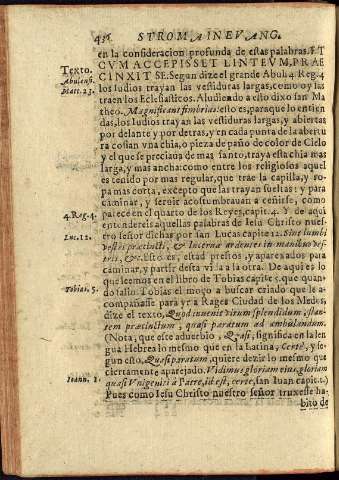 436 STROMA IN EVANG.
en la consideracion profunda de estas palabras. ET
CVM ACCEPISSET LINTEVM, PRAE
CINXIT SE. Segun dize el grande Abul. 4. Reg. 4
los Iudios trayan las vestiduras largas, como oy las
traen los Eclesiasticos. Aludiendo a esto dixo san Ma
theo. Magnificant fimbrias: esto es, para que lo entien
das, los Iudios trayan las vestiduras largas, y abiertas
por delante y por detras, y en cada punta de la abertu
ra cosian vna chia, o pieza de paño de color de Cielo
y el que se preciaua de mas santo, traya esta chia mas
larga, y mas ancha: como entre los religiosos aquel
es tenido por mas regular, que trae la capilla, y ro
pa mas corta, excepto que las trayan sueltas: y para
caminar, y seruir acostumbrauan a ceñirse, como
parece en el quarto de los Reyes, capit. 4. Y de aqui
entendereis aquellas palabras de Iesu Christo nues
tro señor dichas por san Lucas capite 12. Sint lumbi
vestri præcincti, & lucernæ ardentes in manibus ves-
tris, &c. Esto es, estad prestos, y aparejados para
caminar, y partir desta vida a la otra. De aqui es lo
que leemos en el libro de Tobias capite 5. que quan-
do salio Tobias el moço a buscar criado que le a-
compañasse para yr a Rages Ciudad de los Medes,
dize el texto, Quod inuenit virum splendidum, stan-
tem præcinctum, quasi paratum ad ambulandum.
(Nota, que este aduerbio, Quasi, significa en la len
gua Hebrea lo mesmo que en la Latina, Certè, y se-
gun esto, Quasi paratum, quiere dezir lo mesmo que
ciertamente aparejado. Vidimus gloriam eius, gloriam
quasi Vnigeniti à Patre, id est, certe, san Iuan capit. 1.)
Pues como Iesu Christo nuestro señor truxesse ha-
bito de
Texto.
Abulensi.
Matt. 23.
4. Reg. 4.
Luc. 12.
Tobias. 5.
Ioann. 1.